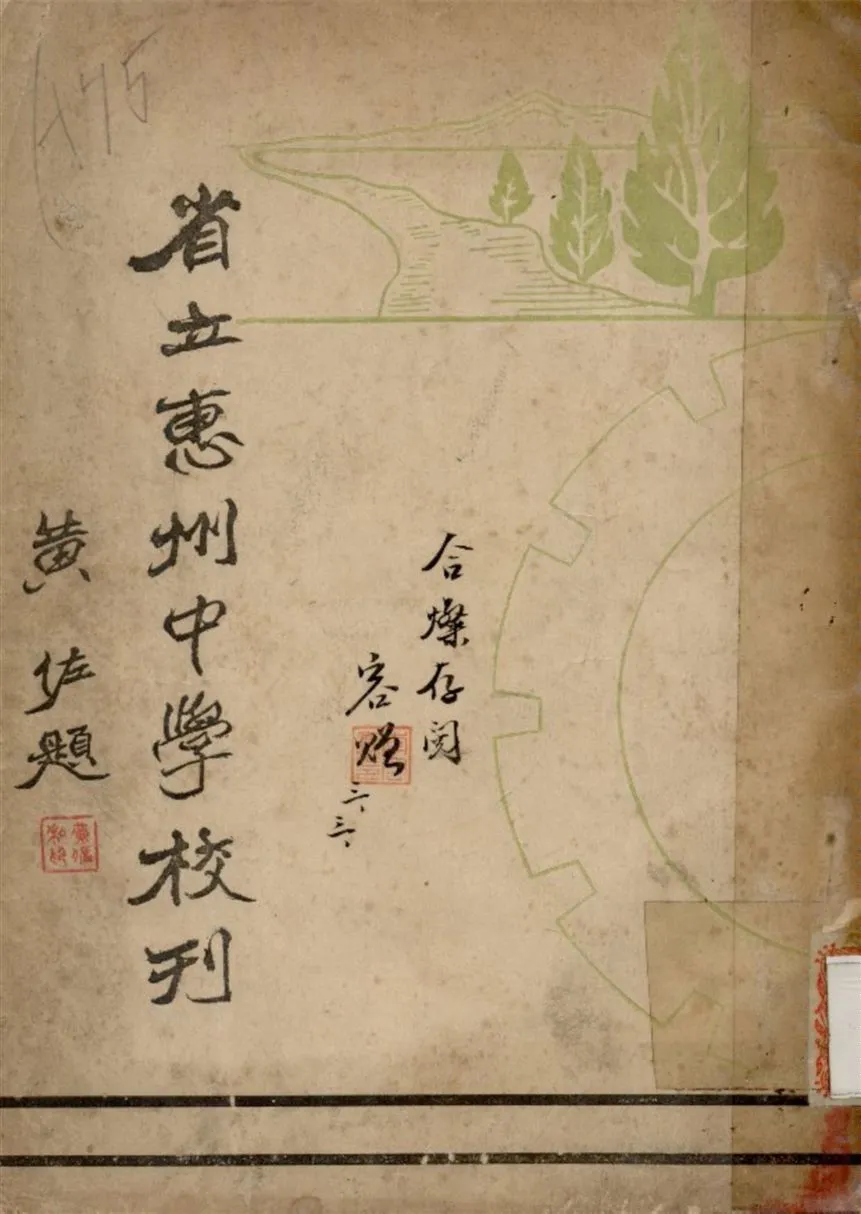 合燦存閱
容贈
三、三、
省立惠州中學校刊
黄佐題
475